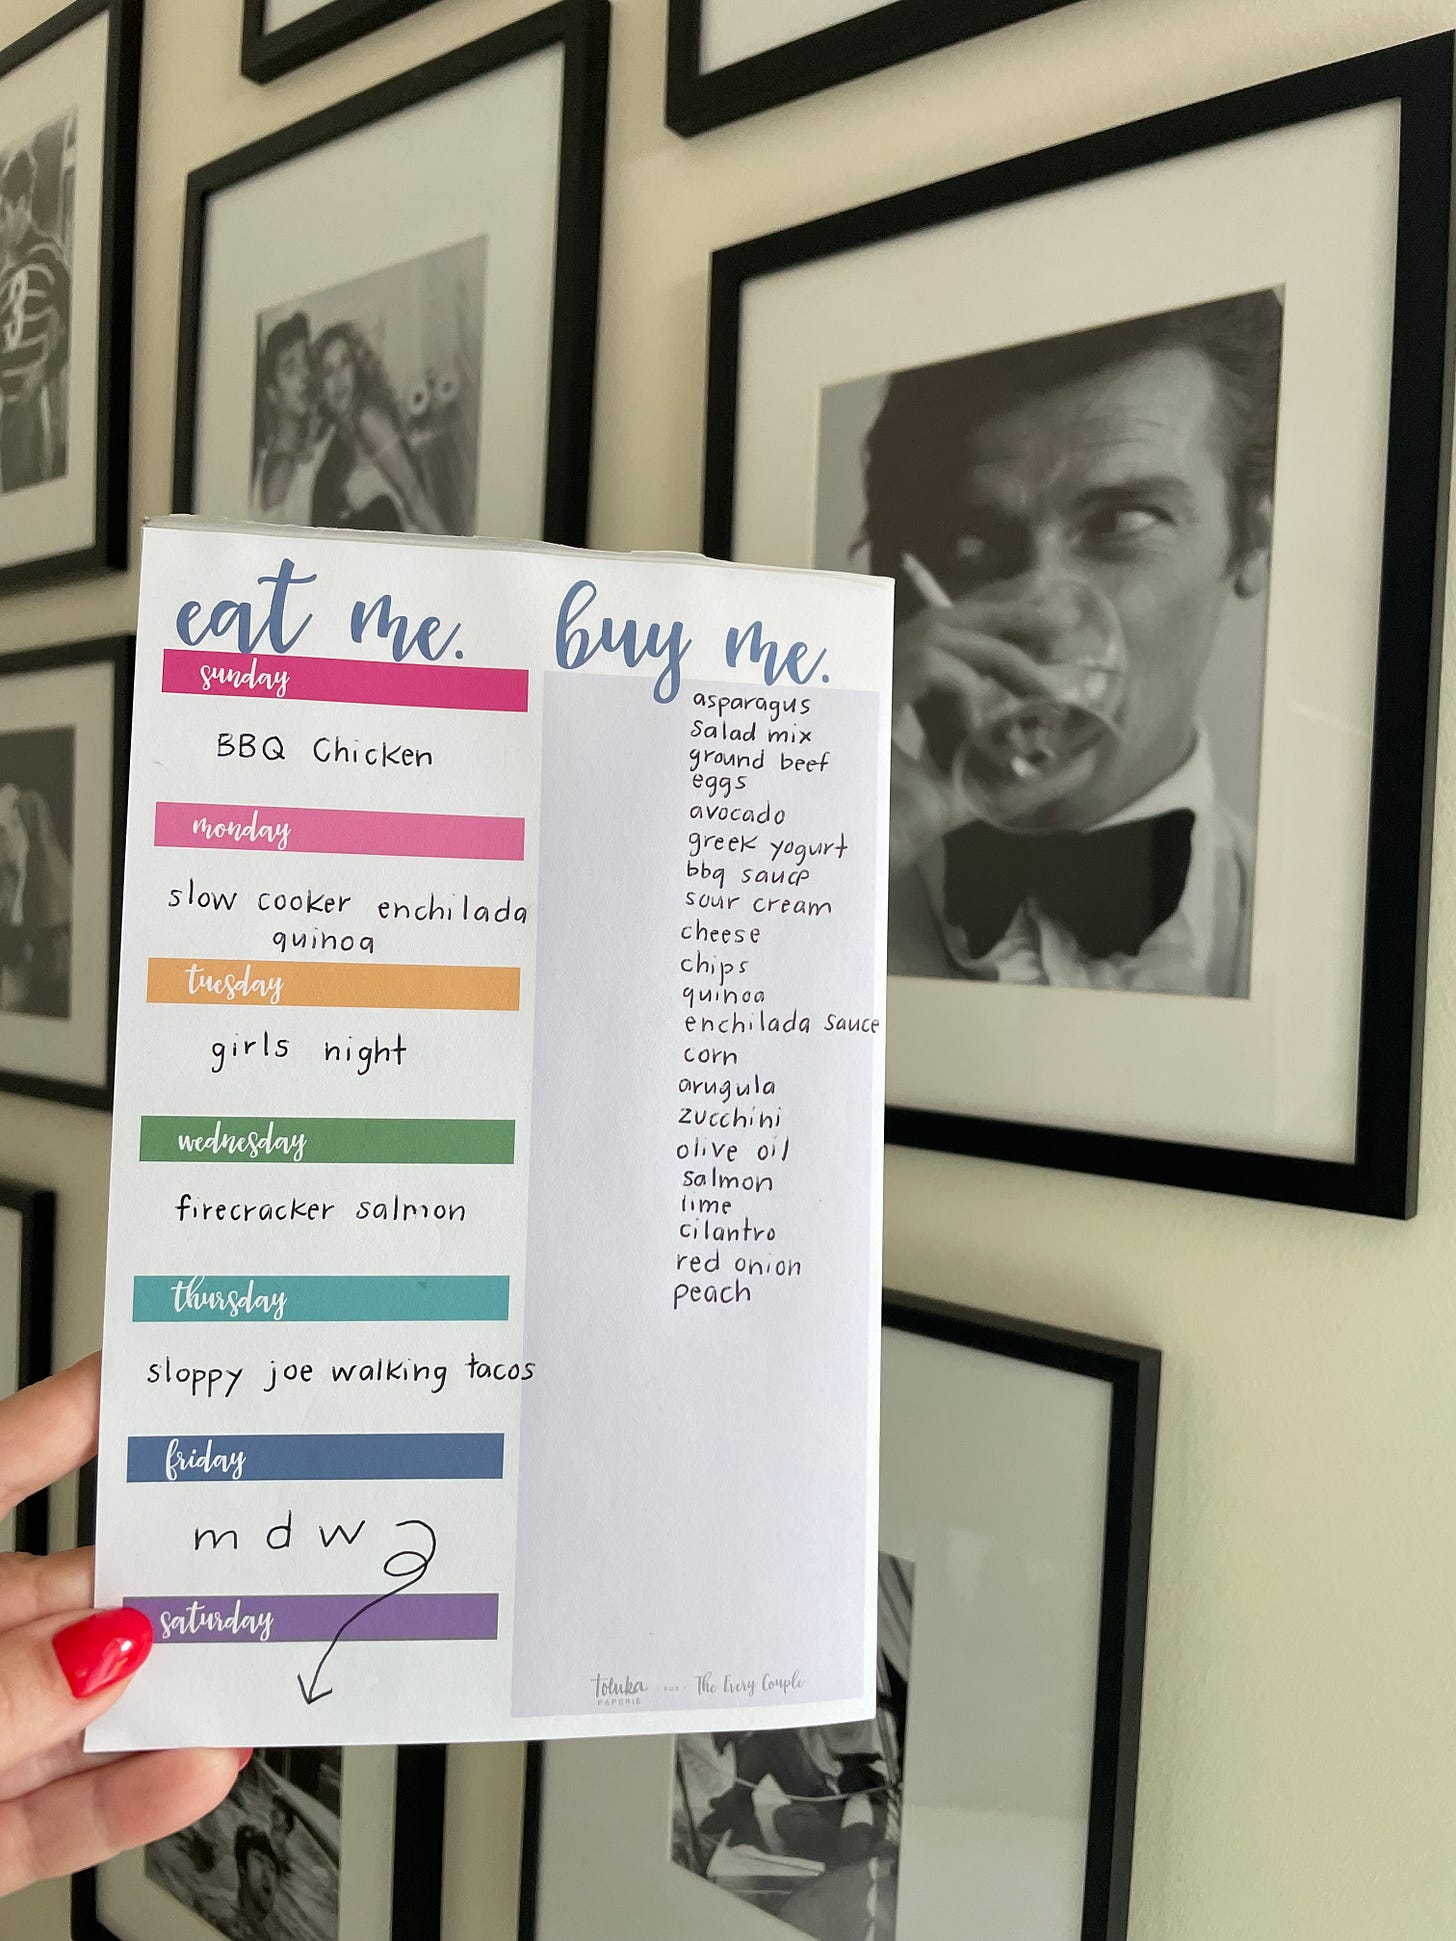 eat me.
sunday
BBQ Chicken
monday
slow cooker enchilada
quinoa
tuesday
girls night
wednesday
firecracker salmon
thursday
sloppy joe walking tacos
friday
m d w
saturday
buy me.
asparagus
salad mix
ground beef
eggs
avocado
greek yogurt
bbq sauce
sour cream
cheese
chips
quinoa
enchilada sauce
corn
arugula
zucchini
olive oil
salmon
lime
cilantro
red onion
peach
toluka PAPERIE · FOR · The Every Couple